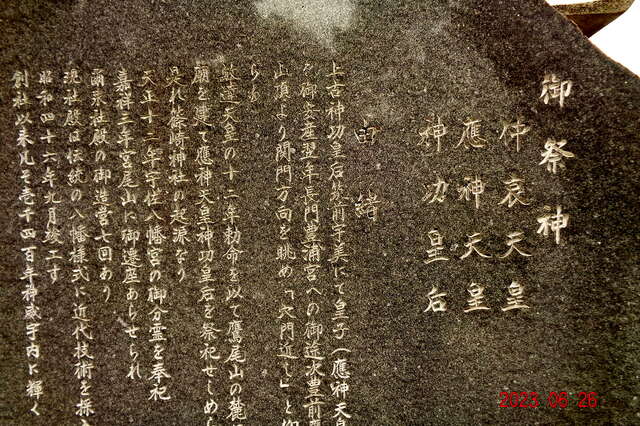 御祭神
仲哀天皇
應神天皇
神功皇后
由緒
上古神功皇后筑前宇美にて皇子(應神天皇
を御安産翌年長門豊浦宮への御途次豊前
山頂より関門方向を眺め「穴門近し」と
らる
敏達天皇の十二年勅命を以て鷹尾山の麓
廟を建て應神天皇神功皇后を祭祀せしめら
是れ篠崎神社の起源なり
天正十二年宇佐八幡宮の御分霊を奉祀
嘉祥三年宮尾山に御遷座あらせられ
爾来社殿の御造営七回あり
現社殿は伝統の八幡様式に近代技術を採
昭和四十六年九月竣工す
創祀以来凡そ壱千四百年神威宇内に輝く
2023 06 26